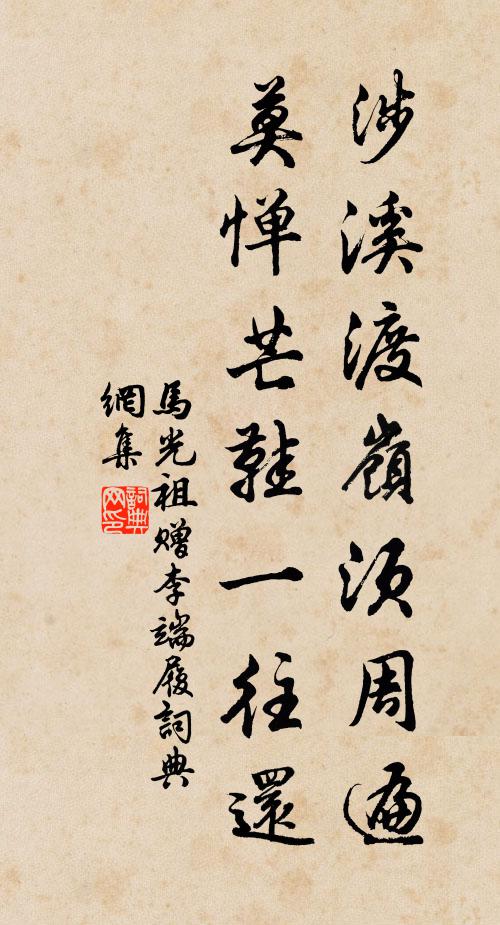 涉溪渡嶺須周遍
莫惮芒鞋一往還
馬光祖贈李端履詞典
網集
詞典網印